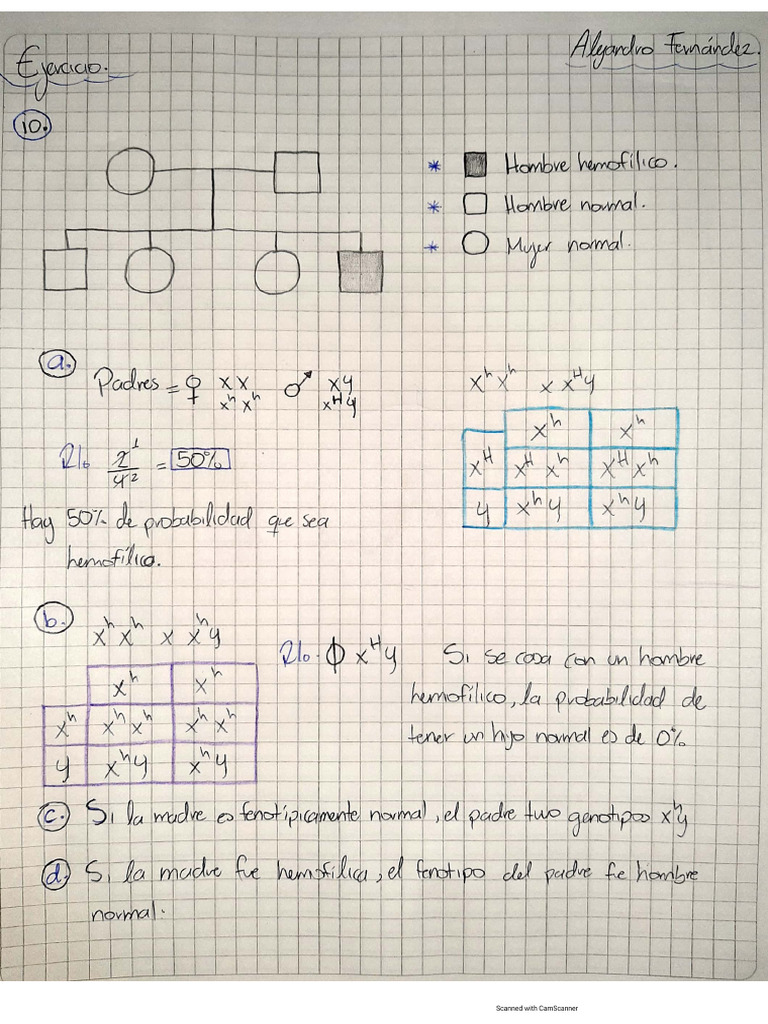 Ejercicio.
Alejandro Fernández.
10.
* Hombre hemofílico.
* Hombre normal.
* Mujer normal.
a.
Padres = ♀ XX ♂ XY
XʰXʰ XᴴY
XʰXʰ x XᴴY
Xʰ Xʰ
Xᴴ XᴴXʰ XᴴXʰ
Y XʰY XʰY
R/. 2¹/4² = 50%
Hay 50% de probabilidad que sea
hemofílico.
b.
XʰXʰ x XʰY
Xʰ Xʰ
Xʰ XʰXʰ XʰXʰ
Y XʰY XʰY
R/. ϕ XᴴY
Si se casa con un hombre
hemofílico, la probabilidad de
tener un hijo normal es de 0%
c. Si la madre es fenotípicamente normal, el padre tuvo genotipos XʰY
d. Si la madre fue hemofílica, el fenotipo del padre fie hombre
normal.
Scanned with CamScanner